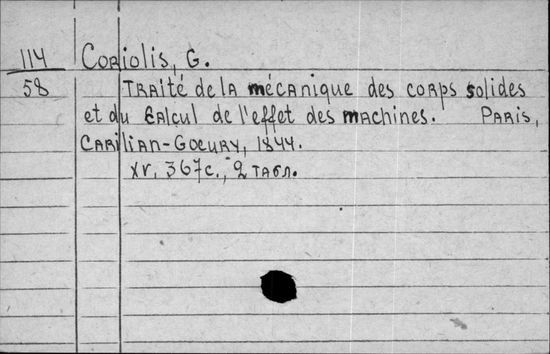 114 Coriolis, G.
58 Traité de la mécanique des corps solides
et du calcul de l'effet des machines. Paris,
Carilian-Goeury, 1844.
XV, 367с., 2 табл.